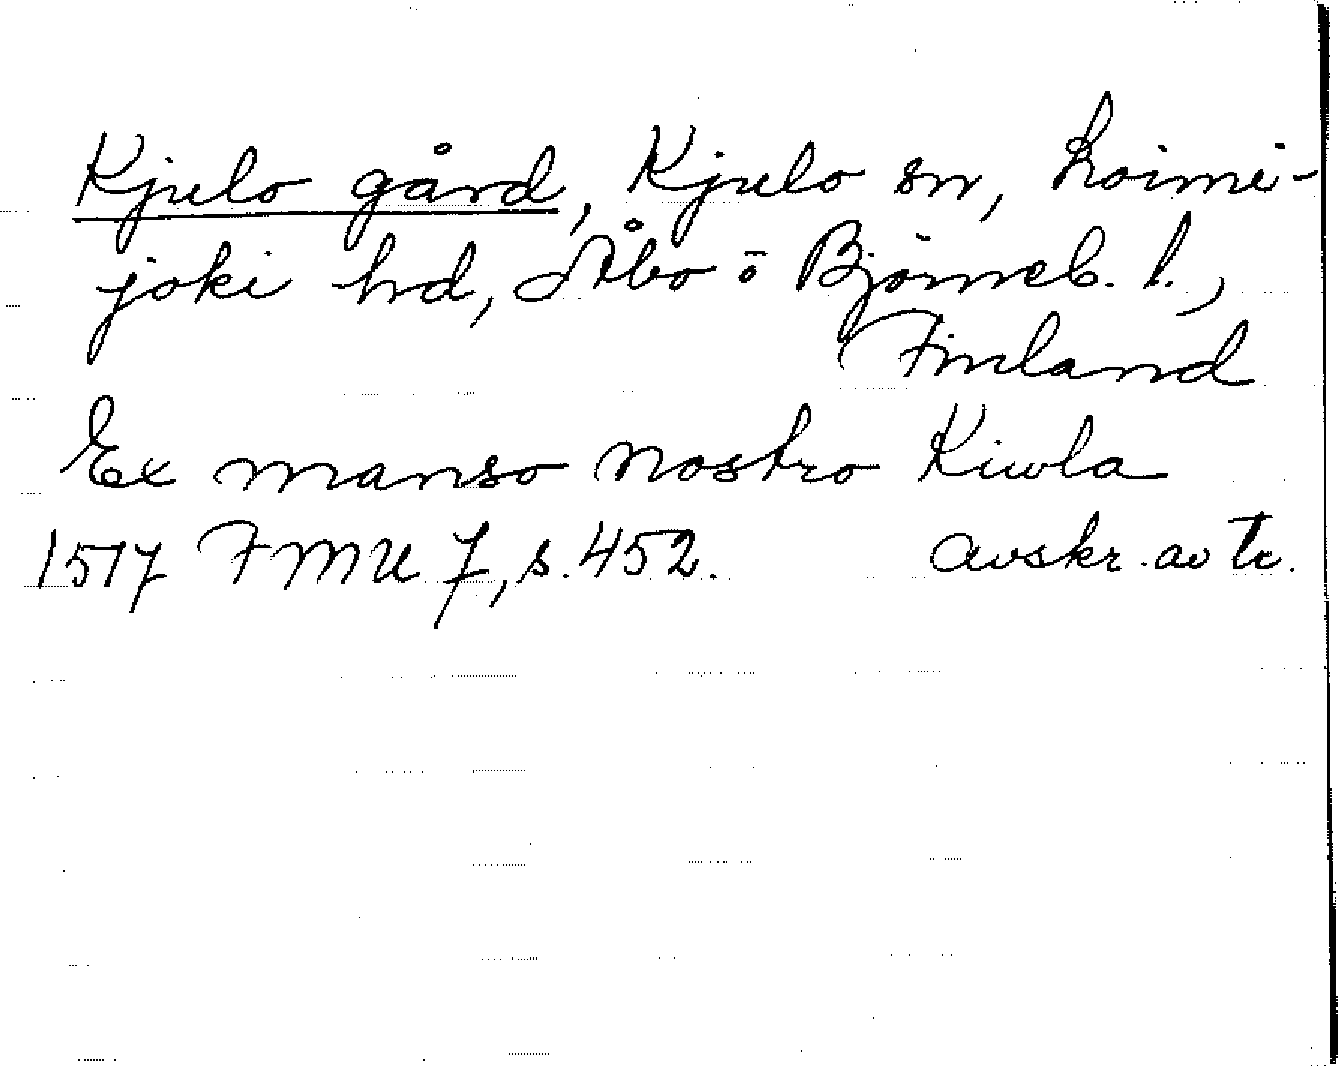 Kjulo gård, Kjulo sn, Loimi-
joki hd, Åbo o Björneb. l.,
Finland
Ex manso nostro Kiwla
1517 FMU 7, s. 452. avskr. av tr.